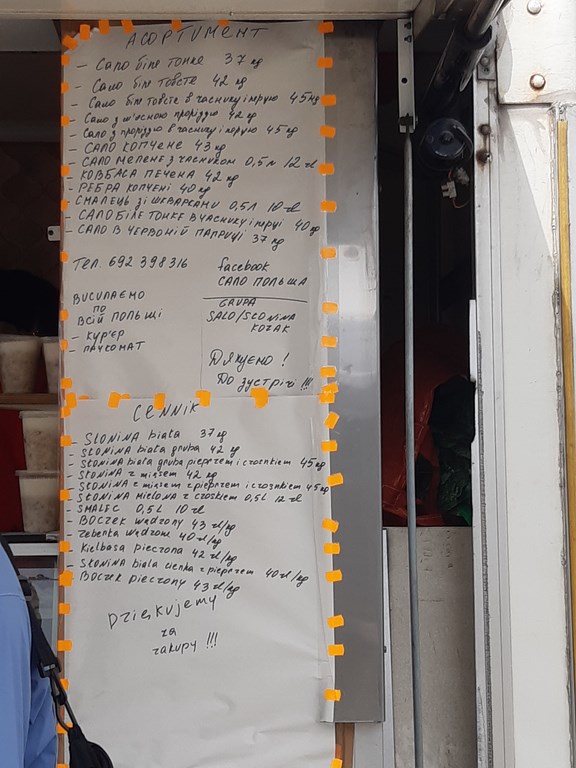 АСОРТИМЕНТ
- Сало біле тонке 37 kg
- Сало біле товсте 42 kg
- Сало біле товсте в часнику і перцю 45 kg
- Сало з м'ясною проріздю 42 kg
- Сало з проріздю в часнику і перцю 45 kg
- САЛО КОПЧЕНЕ 43 kg
- САЛО МЕЛЕНЕ З ЧАСНИКОМ 0,5л 12 zł
- КОВБАСА ПЕЧЕНА 42 kg
- РЕБРА КОПЧЕНІ 40 kg
- СМАЛЕЦЬ ЗІ ШКВАРКАМИ 0,5л 10 zł
- САЛО БІЛЕ ТОНКЕ В ЧАСНИКУ і перці 40 kg
- САЛО В ЧЕРВОНІЙ ПАПРИЦІ 37 kg
Тел. 692 398316
ВИСИЛАЄМО
ПО
ВСІЙ ПОЛЬЩІ
- КУР'ЄР
- ПАЧКОМАТ
facebook
САЛО ПОЛЬША
GRUPA
SALO/SŁONINA
KOZAK
Дякуємо !
До зустрічі !!!
CENNIK
- SŁONINA biała 37 kg
- SŁONINA biała gruba 42 kg
- SŁONINA biała gruba pieprzem i czosnkiem 45 kg
- SŁONINA z mięsem 42 kg
- SŁONINA z mięsem z pieprzem i czosnkiem 45 kg
- SŁONINA mielona z czosnkiem 0,5L 12 zł
- SMALEC 0,5L 10 zł
- BOCZEK wędzony 43 zł/kg
- żebenka wędzone 40 zł/kg
- Kiełbasa pieczona 42 zł/kg
- SŁONINA biała cienka z pieprzem 40 zł/kg
- BOCZEK pieczony 43 zł/kg
Dziękujemy
za
zakupy !!!